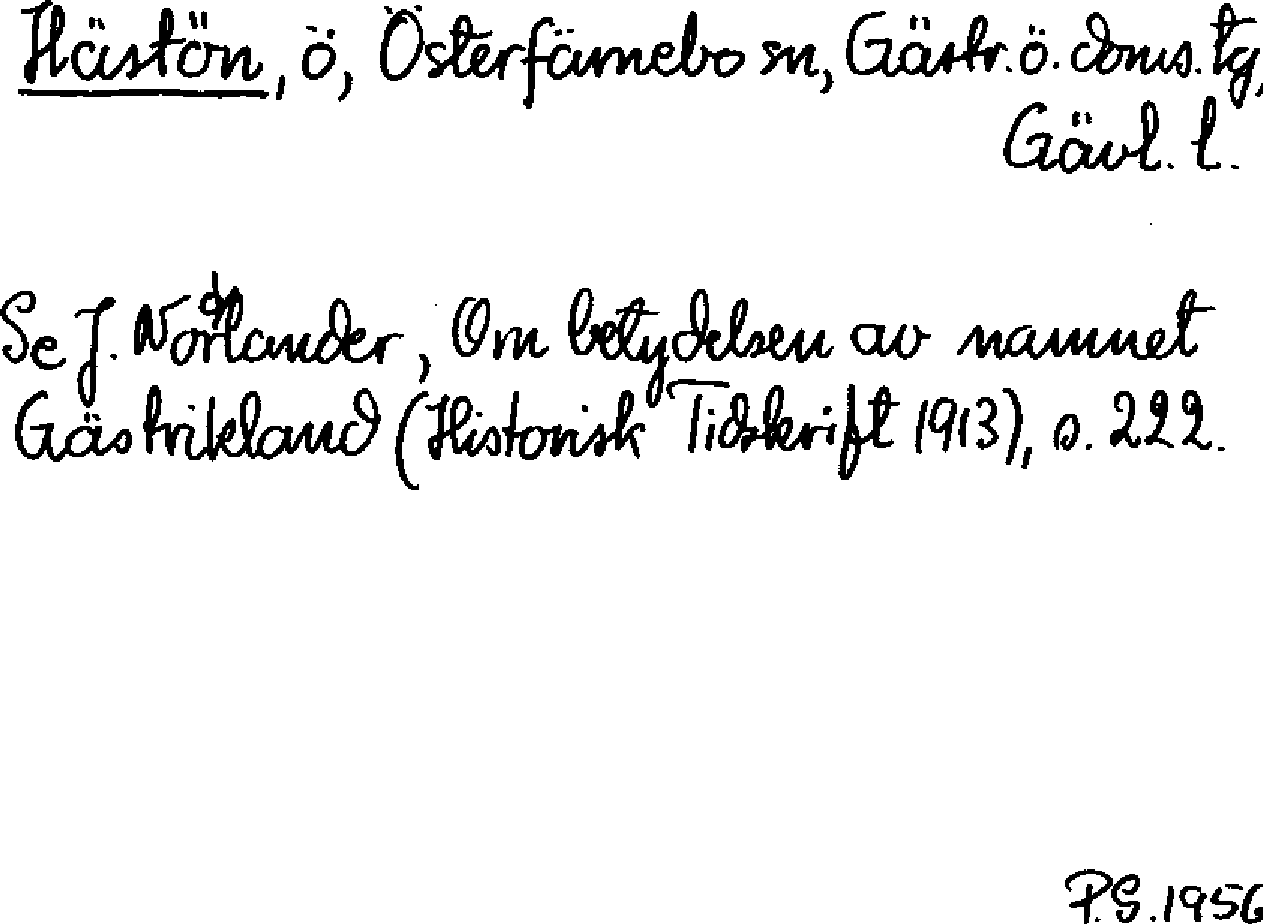 Hästön, ö, Österfärnebo sn, Gästr. ö. doms. tg,
Gävl. l.
Se J. Nordlander, Om betydelsen av namnet
Gästrikland (Historisk Tidskrift 1913), s. 222.
P.S. 1956